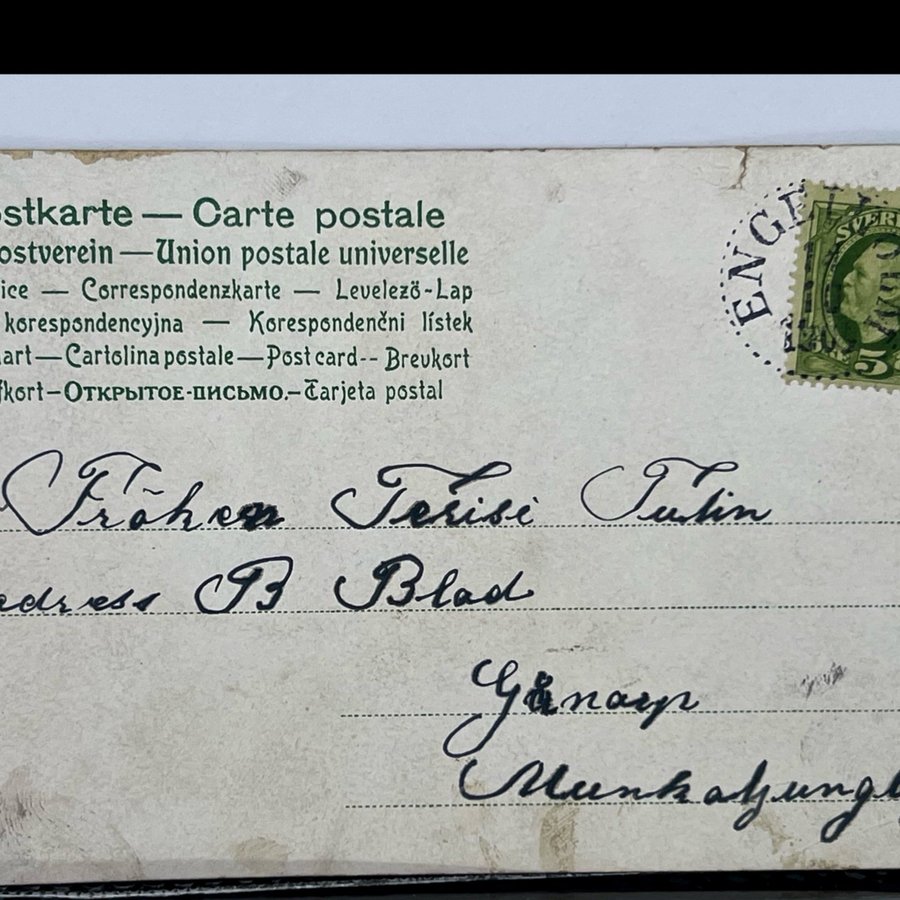 ostkarte — Carte postale
ostverein — Union postale universelle
ice — Correspondenzkarte — Levelező-Lap
korespondencyjna — Korespondenčni lístek
art — Cartolina postale — Post card -- Brevkort
fkort — Открытое-письмо. — Tarjeta postal
ENGE
SVER
5
Fröken Terisi Tulin
adress B Blad
Gånarp
Munkaljungb